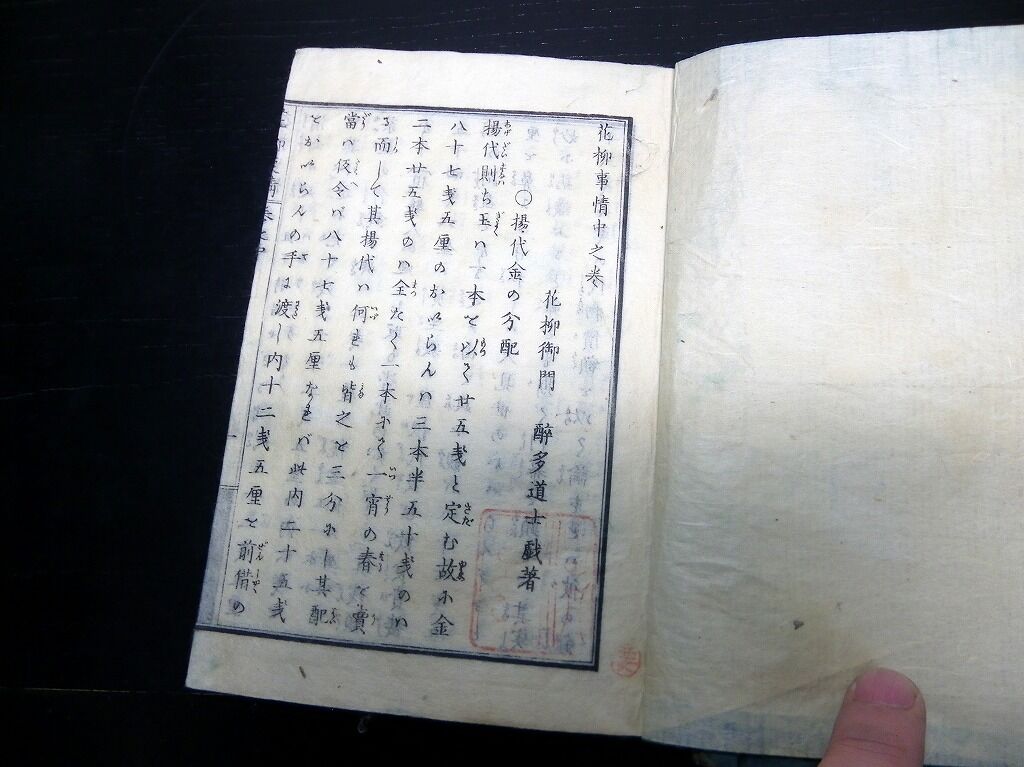 花柳事情中之巻
花柳御門 醉多道士戯著
○揚代金の分配
揚代則ち玉ハ一本を以て廿五戔と定む故に金
八十七戔五厘のおいらんハ三本半五十戔のハ
二本廿五戔のハ全たく一本にて一宵の春を賣
る而して其揚代ハ何れも皆之を三分にし其配
當ハ假令バ八十七戔五厘なれバ此内二十五戔
とおいらんの手に渡し内十二戔五厘を前借の